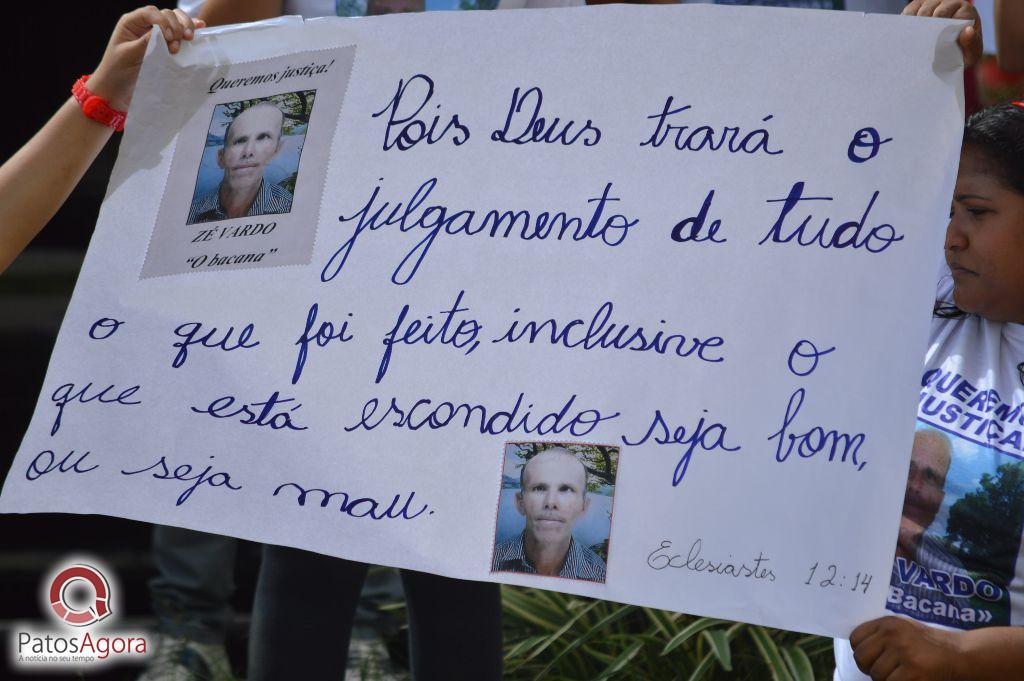 Queremos justiça!
ZÉ VARDO
"O bacana"
Pois Deus trará o
julgamento de tudo
o que foi feito, inclusive o
que está escondido seja bom,
ou seja mau.
Eclesiastes 12:14
JUSTIÇA
VARDO
Bacana»
PatosAgora
A notícia no seu tempo